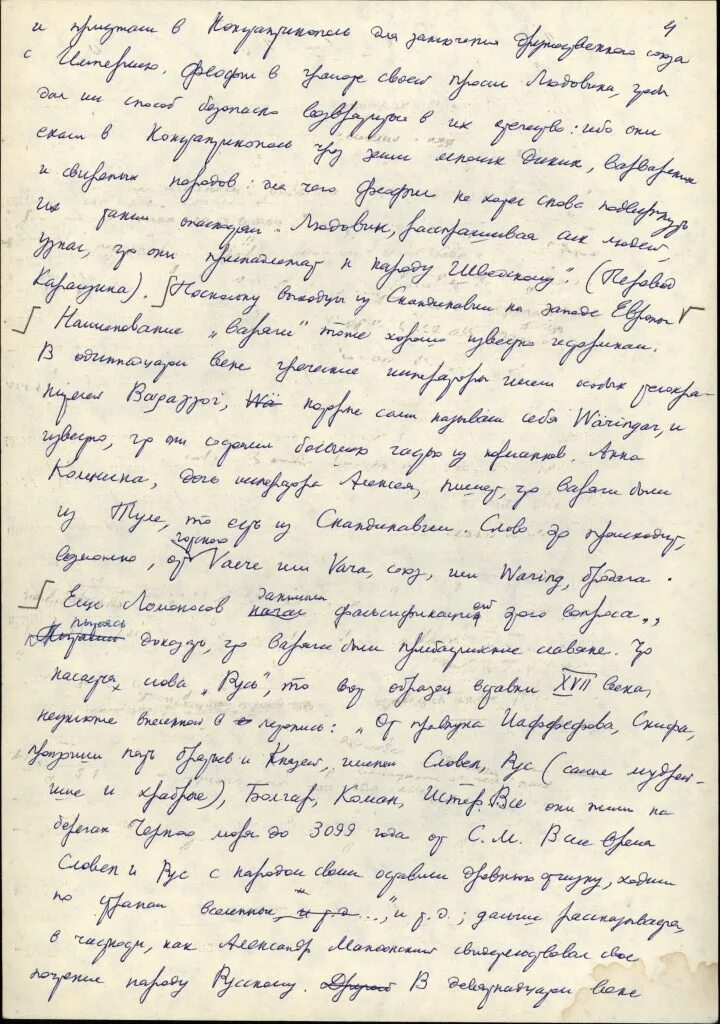 4
и приехали в Константинополь для заключения дружественного союза
с Империею. Феофил в грамоте своей просил Людовика, чтобы
дал им способ безопасно возвратиться в их отечество: ибо они
ехали в Константинополь чрез земли многих диких, варварских
и свирепых народов: для чего Феофил не хотел снова подвергнуть
их таким опасностям. Людовик, расспрашивая сих людей,
узнал, что они принадлежат к народу Шведскому". (Перевод
Карамзина). Поскольку выходцы из Скандинавии на западе Европы
Наименование "варяги" тоже хорошо известно историкам.
В одиннадцатом веке греческие императоры имели особых телохра-
нителей Βαραγγοι, Wä которые сами называли себя Wäringar, и
известно, что они состояли большею частью из норманнов. Анна
Комнина, дочь императора Алексея, пишет, что варяги были
из Туле, то есть из Скандинавии. Слово это происходит,
возможно, от готского Vaere или Vara, союз, или Waring, бродяга.
Еще Ломоносов начал занимался фальсификацией этого вопроса,
пытаясь доказать, что варяги были прибалтийские славяне. Что
касается слова "Русь", то вот образец вставки XVII века,
неуклюже внесенной в летопись: "От правнука Иаффефова, Скифа,
произошли пять братьев и Князей, именем Словен, Рус (самые мудрей-
шие и храбрые), Болгар, Коман, Истер. Все они жили на
берегах Черного моря до 3099 года от С.М. В сие время
Словен и Рус с народом своим оставили древнюю отчизну, ходили
по странам вселенныя, и т.д. ...", и т.д.; дальше рассказывается,
в частности, как Александр Македонский свидетельствовал свое
почтение народу Русскому. Другой В девятнадцатом веке